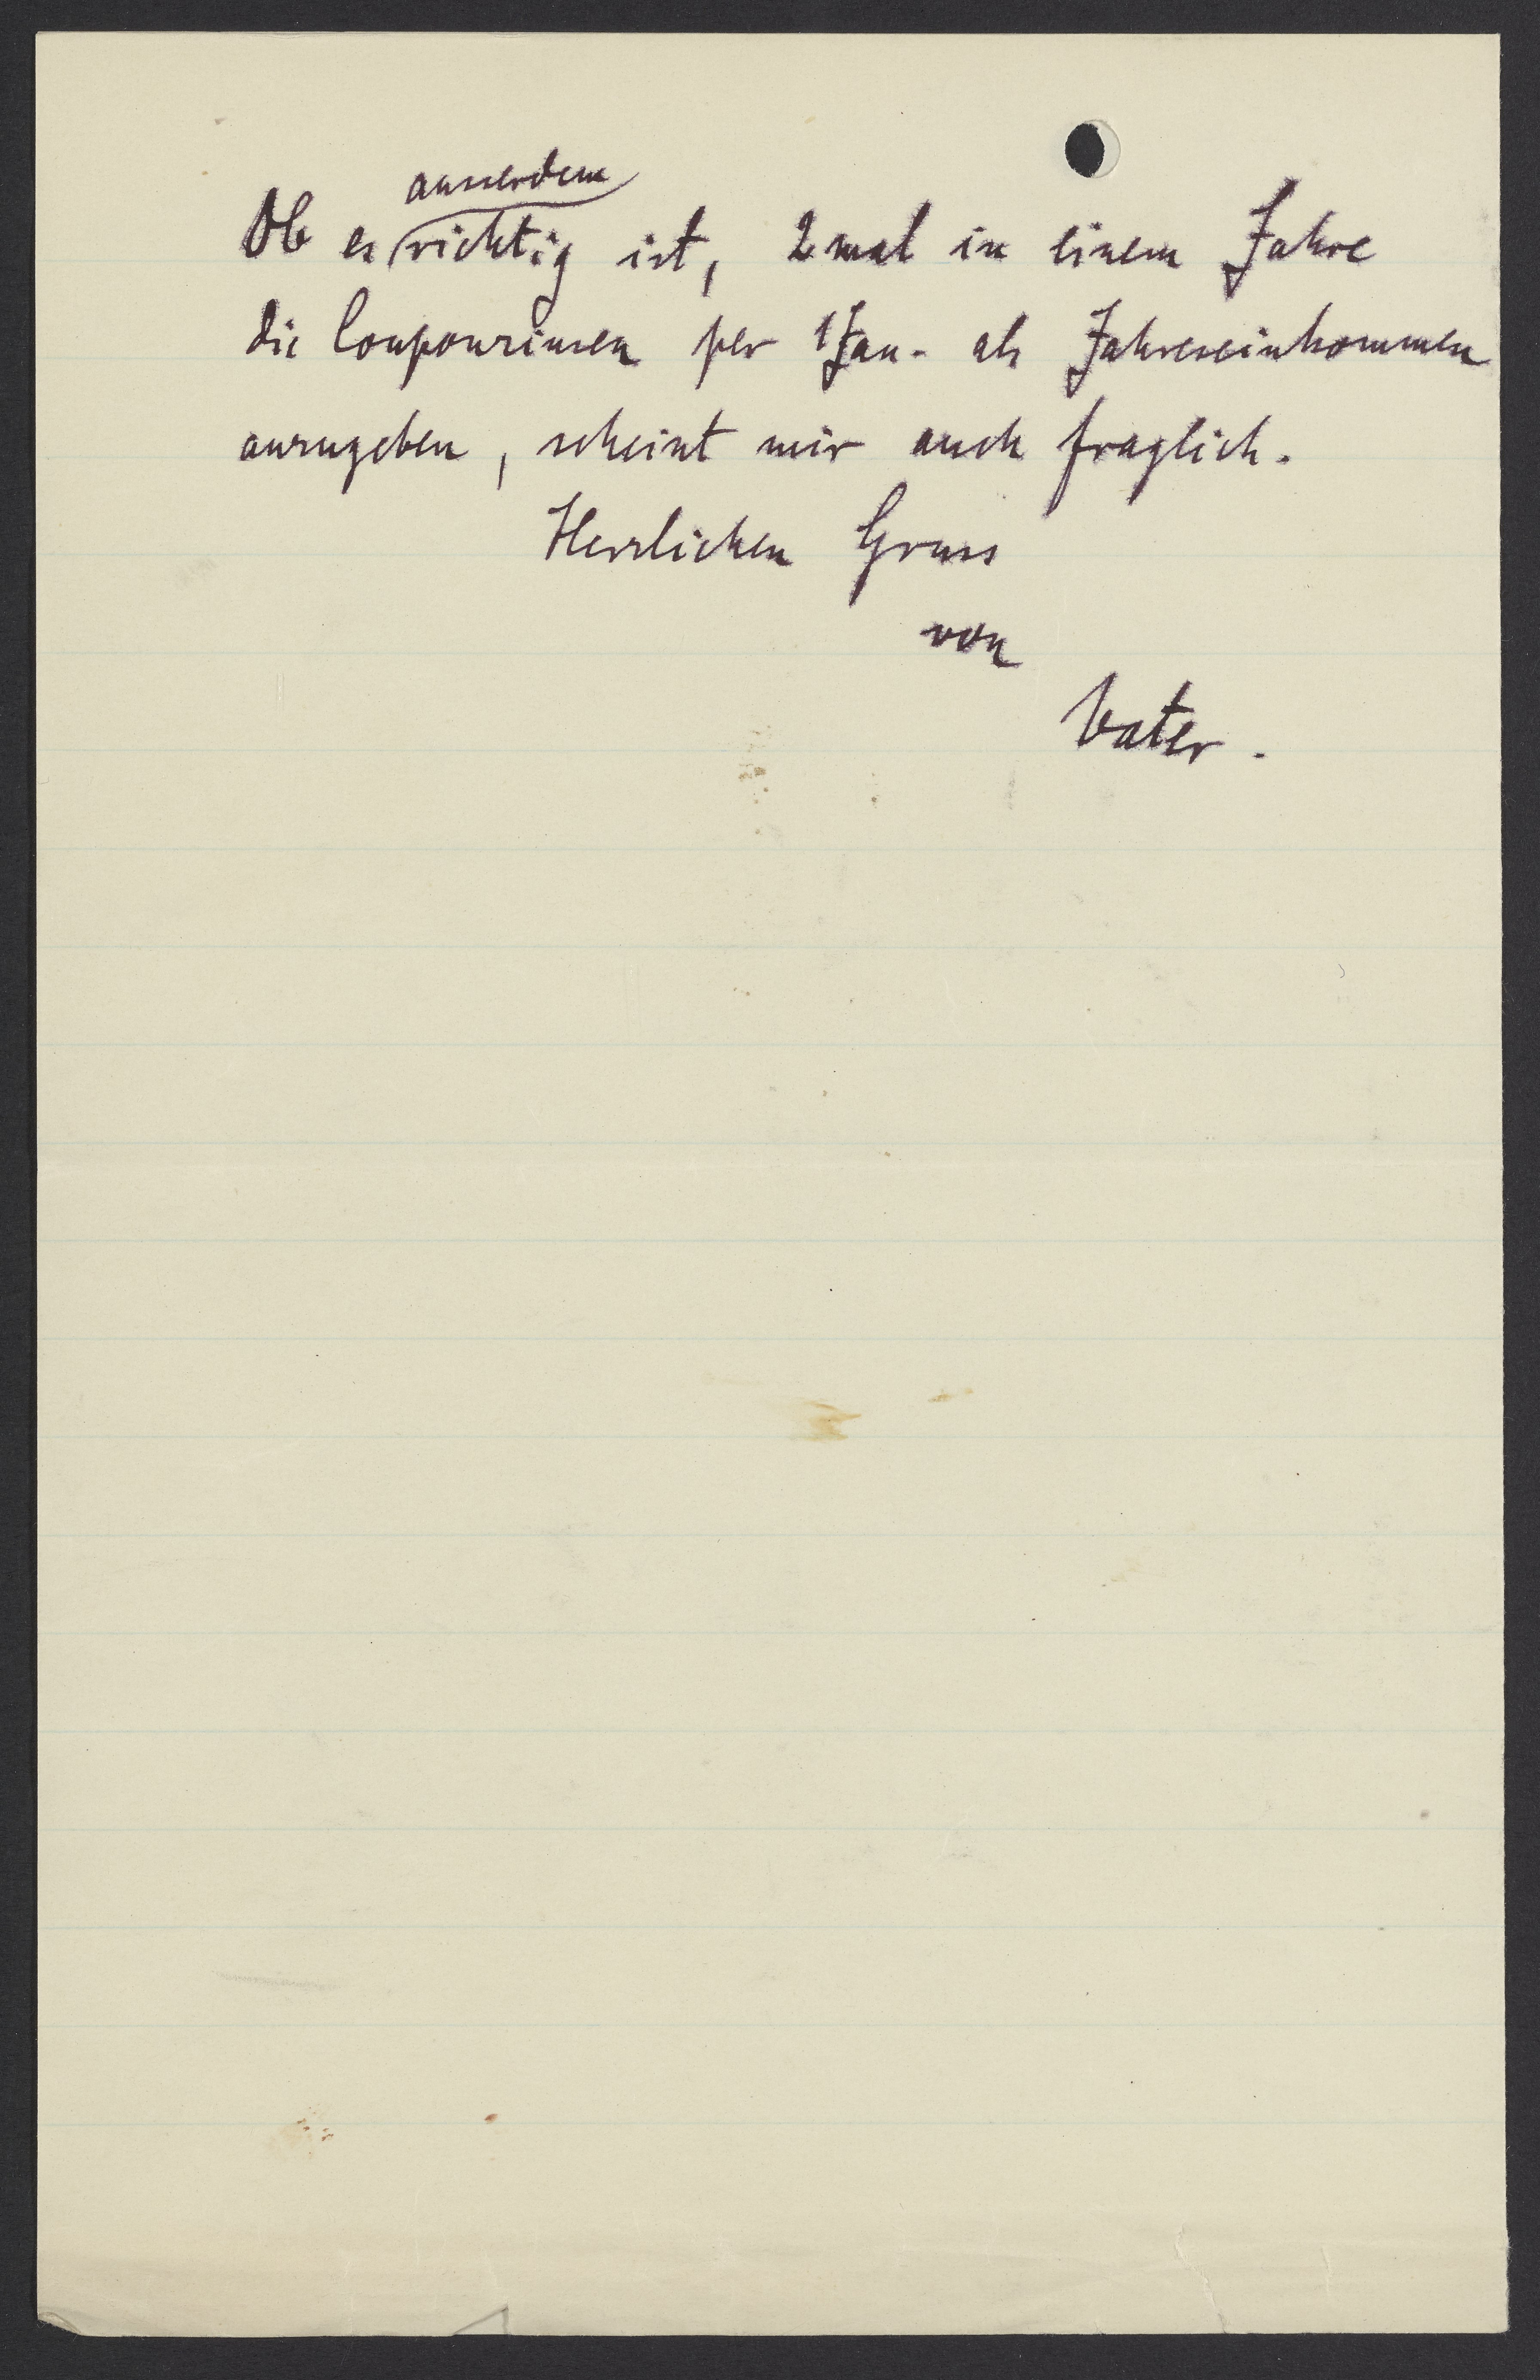 ausserdem
Ob es richtig ist, 2 mal in einem Jahre
die Couponzinsen per 1 Jan. als Jahreseinkommen
anzugeben, scheint mir auch fraglich.
Herzlichen Gruss
von
Vater.